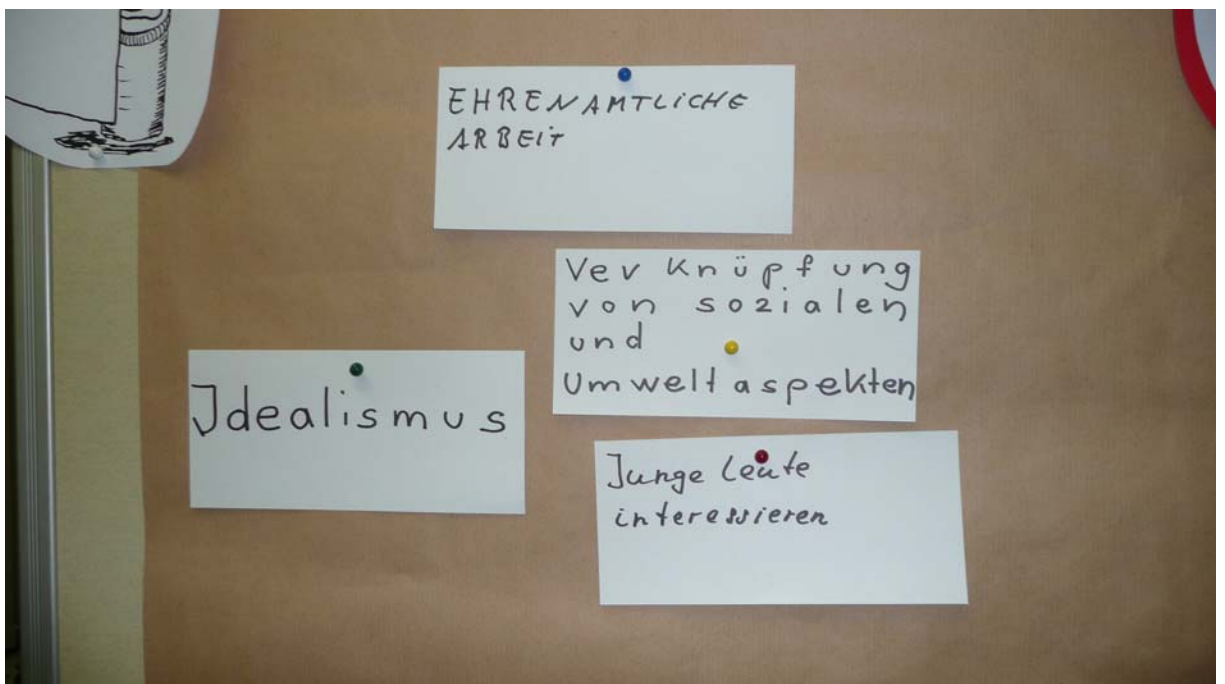 EHRENAMTLICHE
ARBEIT
Verknüpfung
von sozialen
und
Umweltaspekten
Idealismus
Junge Leute
interessieren